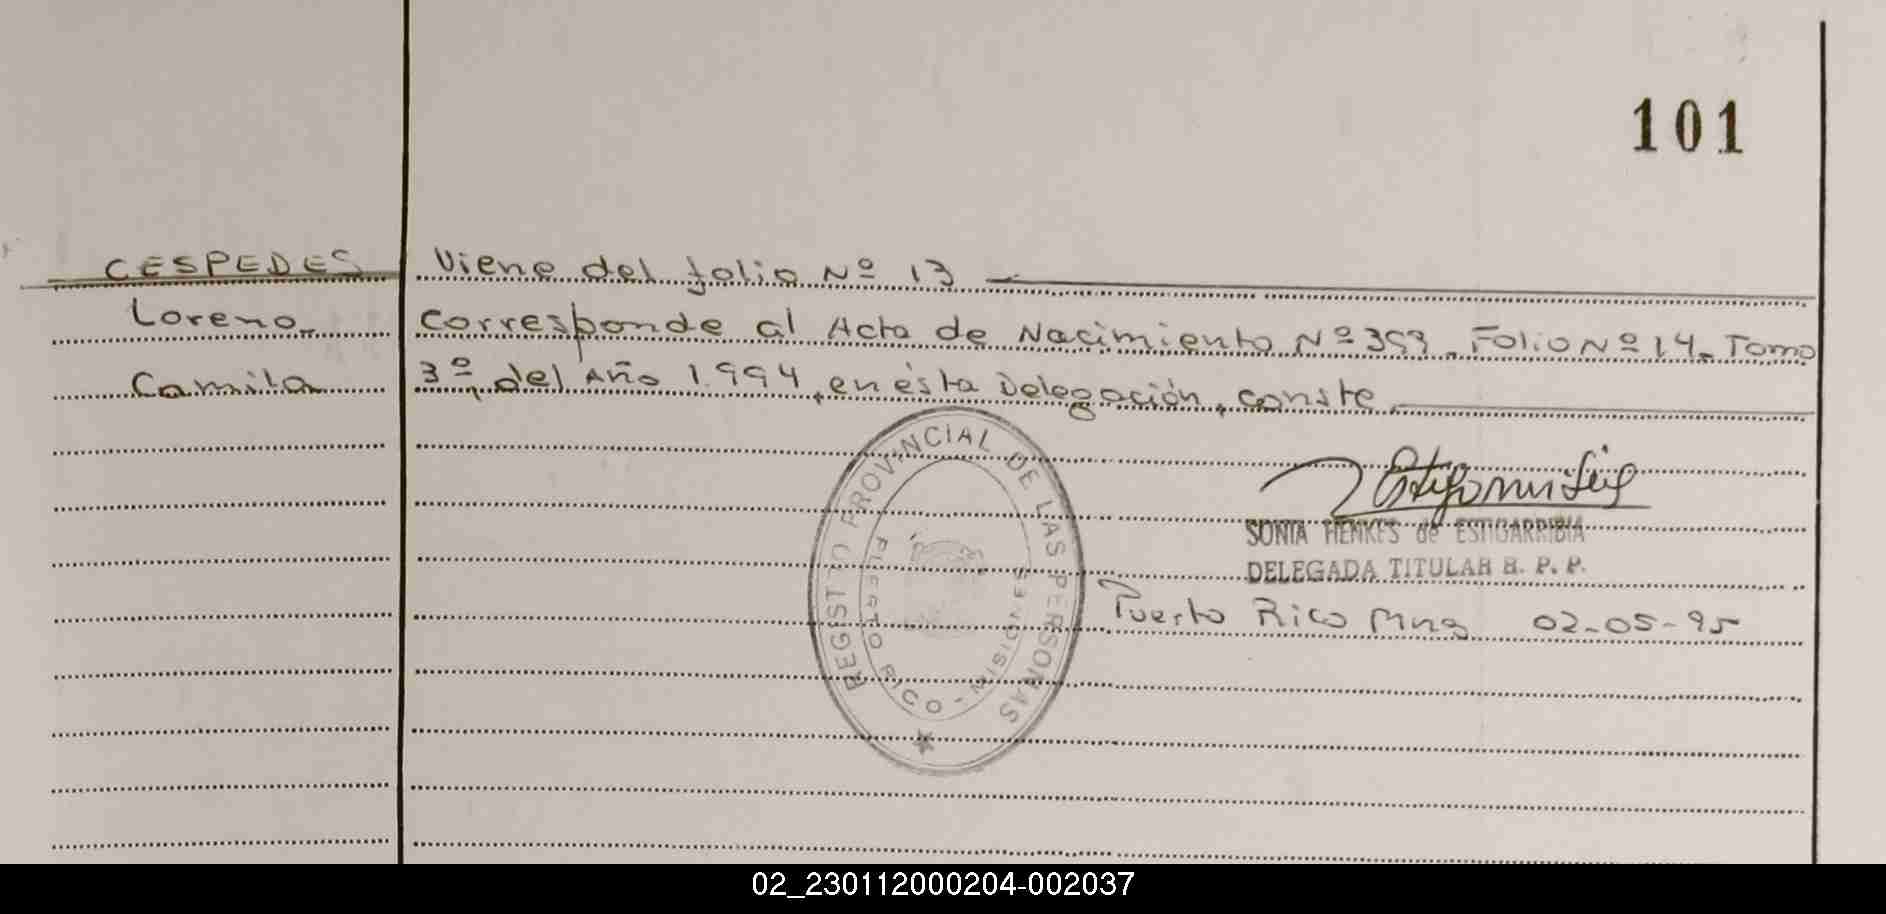 101
CESPEDES Viene del folio Nº 13
Lorena Corresponde al Acta de Nacimiento Nº 393. Folio Nº 14. Tomo
Camila 3º, del Año 1.994, en ésta Delegación, conste.
REGISTRO PROVINCIAL DE LAS PERSONAS
PUERTO RICO - MISIONES
SONIA HENKES de ESTIGARRIBIA
DELEGADA TITULAR R. P. P.
Puerto Rico Mnes 02-05-95
02_230112000204-002037